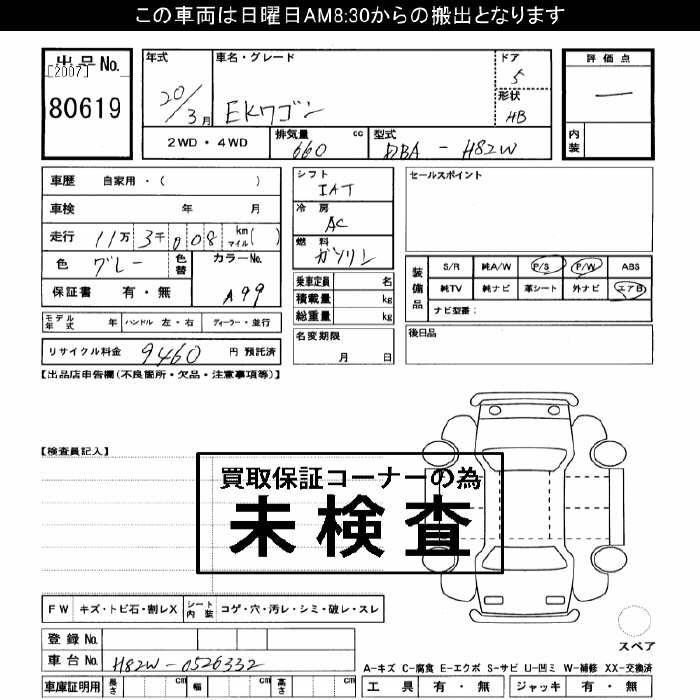 この車両は日曜日AM8:30からの搬出となります
出品No.
[2007]
80619
年式
20/3月
車名・グレード
EKワゴン
ドア
5
形状
HB
2WD・4WD
排気量
660
cc
型式
DBA - H82W
評価点
—
内装
車歴 自家用・( )
車検 年 月
走行 11万3千008 km マイル( )
色 グレー
色替
カラーNo.
A99
保証書 有・無
モデル年式 年 ハンドル 左・右 ディーラー・並行
リサイクル料金 9460 円 預託済
シフト
IAT
冷房
AC
燃料
ガソリン
乗車定員 名
積載量 kg
総重量 kg
名変期限
月 日
セールスポイント
装備品
S/R 純A/W P/S P/W ABS
純TV 純ナビ 革シート 外ナビ エアB
ナビ型番:
後日品
【出品店申告欄(不良箇所・欠品・注意事項等)】
【検査員記入】
買取保証コーナーの為
未検査
FW キズ・トビ石・割レX シート内装 コゲ・穴・汚レ・シミ・破レ・スレ
スペア
登録No.
車台No. H82W-0526332
A-キズ C-腐食 E-エクボ S-サビ U-凹ミ W-補修 XX-交換済
車庫証明用 長さ cm 幅 cm 高さ cm
工具 有・無 ジャッキ 有・無